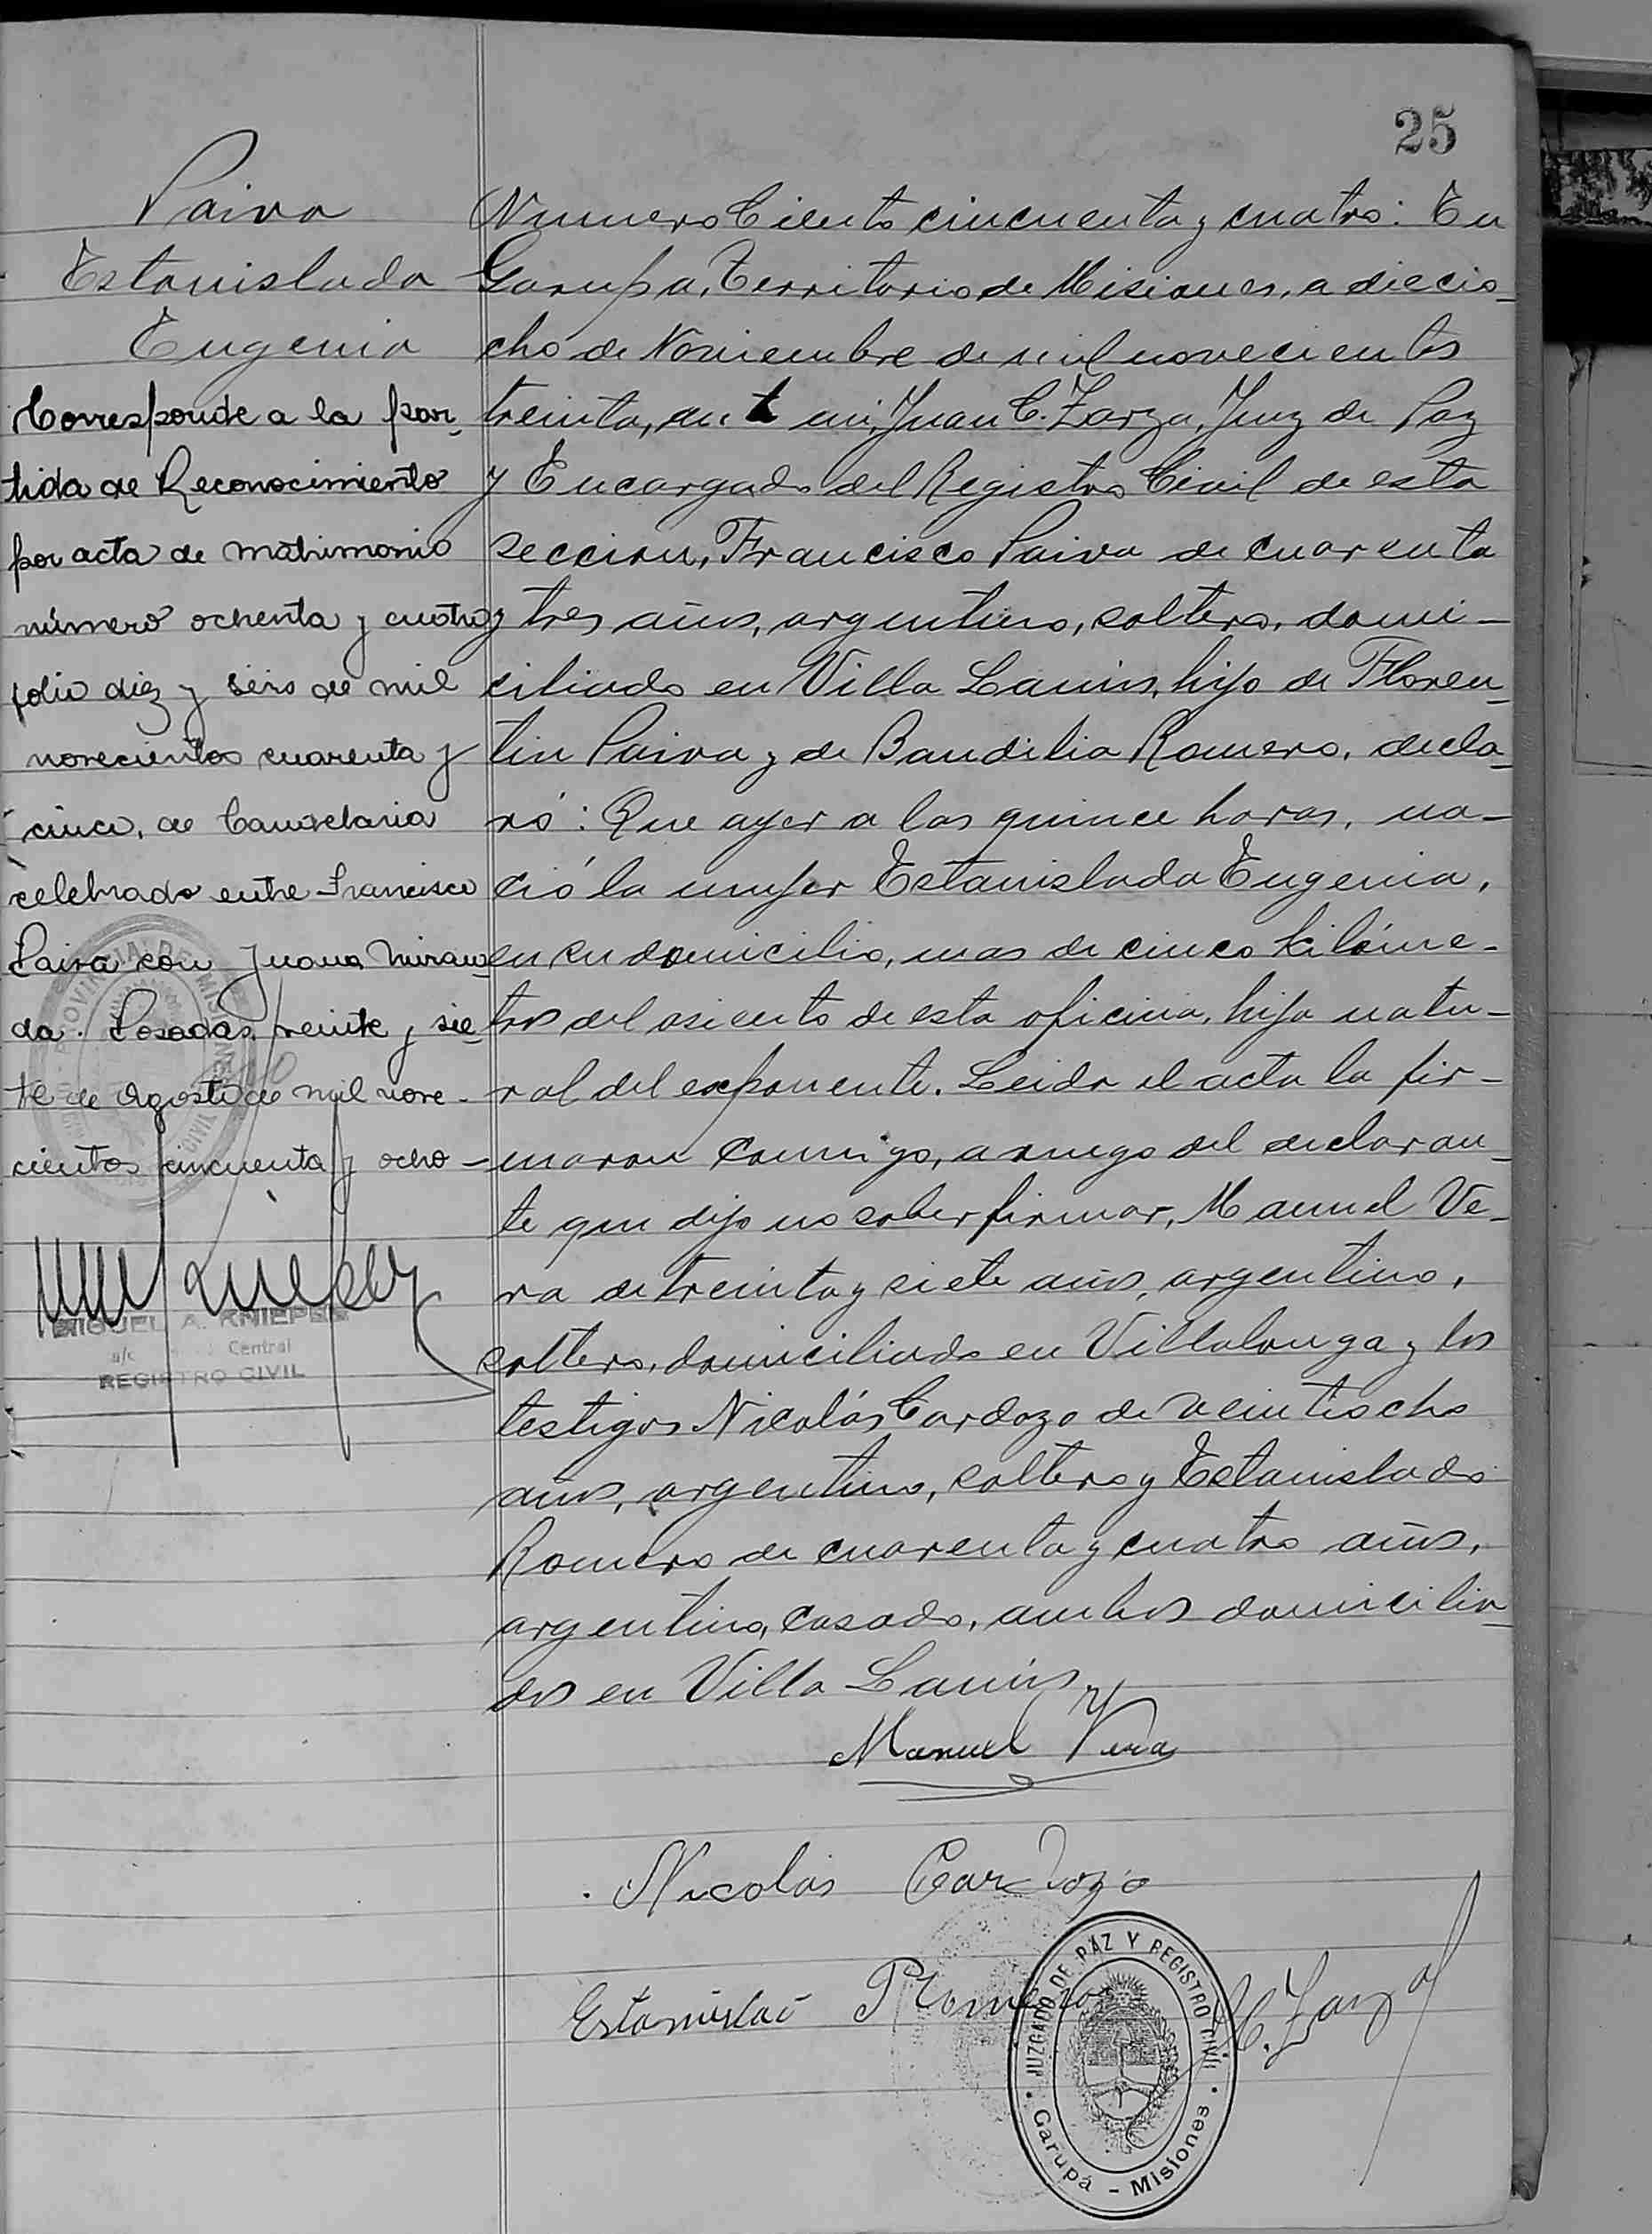 25
Paiva
Estanislada
Eugenia
Corresponde a la par_
tida de Reconocimiento
por acta de matrimonio
número ochenta y cuatro
folio diez y seis de mil
novecientos cuarenta y
cinco, de Candelaria
celebrado entre Francisco
Paiva con Juana Miran_
da. Posadas, veinte y sie_
te de Agosto de mil nove_
cientos cincuenta y ocho_
MIGUEL A. KNIEPER
a/c Central
REGISTRO CIVIL
Numero Ciento cincuenta y cuatro: En
Garupa, Territorio de Misiones, a diecio_
cho de Noviembre de mil novecientos
treinta, ante mi, Juan C. Zarza, Juez de Paz
y Encargado del Registro Civil de esta
seccion, Francisco Paiva de cuarenta
y tres años, argentino, soltero, domi_
ciliado en Villa Lanús, hijo de Floren_
tin Paiva y de Baudilia Romero, decla_
ró: Que ayer a las quince horas, na_
ció la mujer Estanislada Eugenia,
en su domicilio, mas de cinco kilóme_
tros del asiento de esta oficina, hija natu_
ral del exponente. Leida el acta la fir_
maron conmigo, a ruego del declaran_
te que dijo no saber firmar, Manuel Ve_
ra de treinta y siete años, argentino,
soltero, domiciliado en Villalonga y los
testigos Nicolás Cardozo de veintiocho
años, argentino, soltero y Estanislado
Romero de cuarenta y cuatro años,
argentino, casado, ambos domicilia_
dos en Villa Lanús
Manuel Vera
Nicolás Cardozo
Estanislao Romero
J.C. Zarza
JUZGADO DE PAZ Y REGISTRO CIVIL
Garupá - Misiones